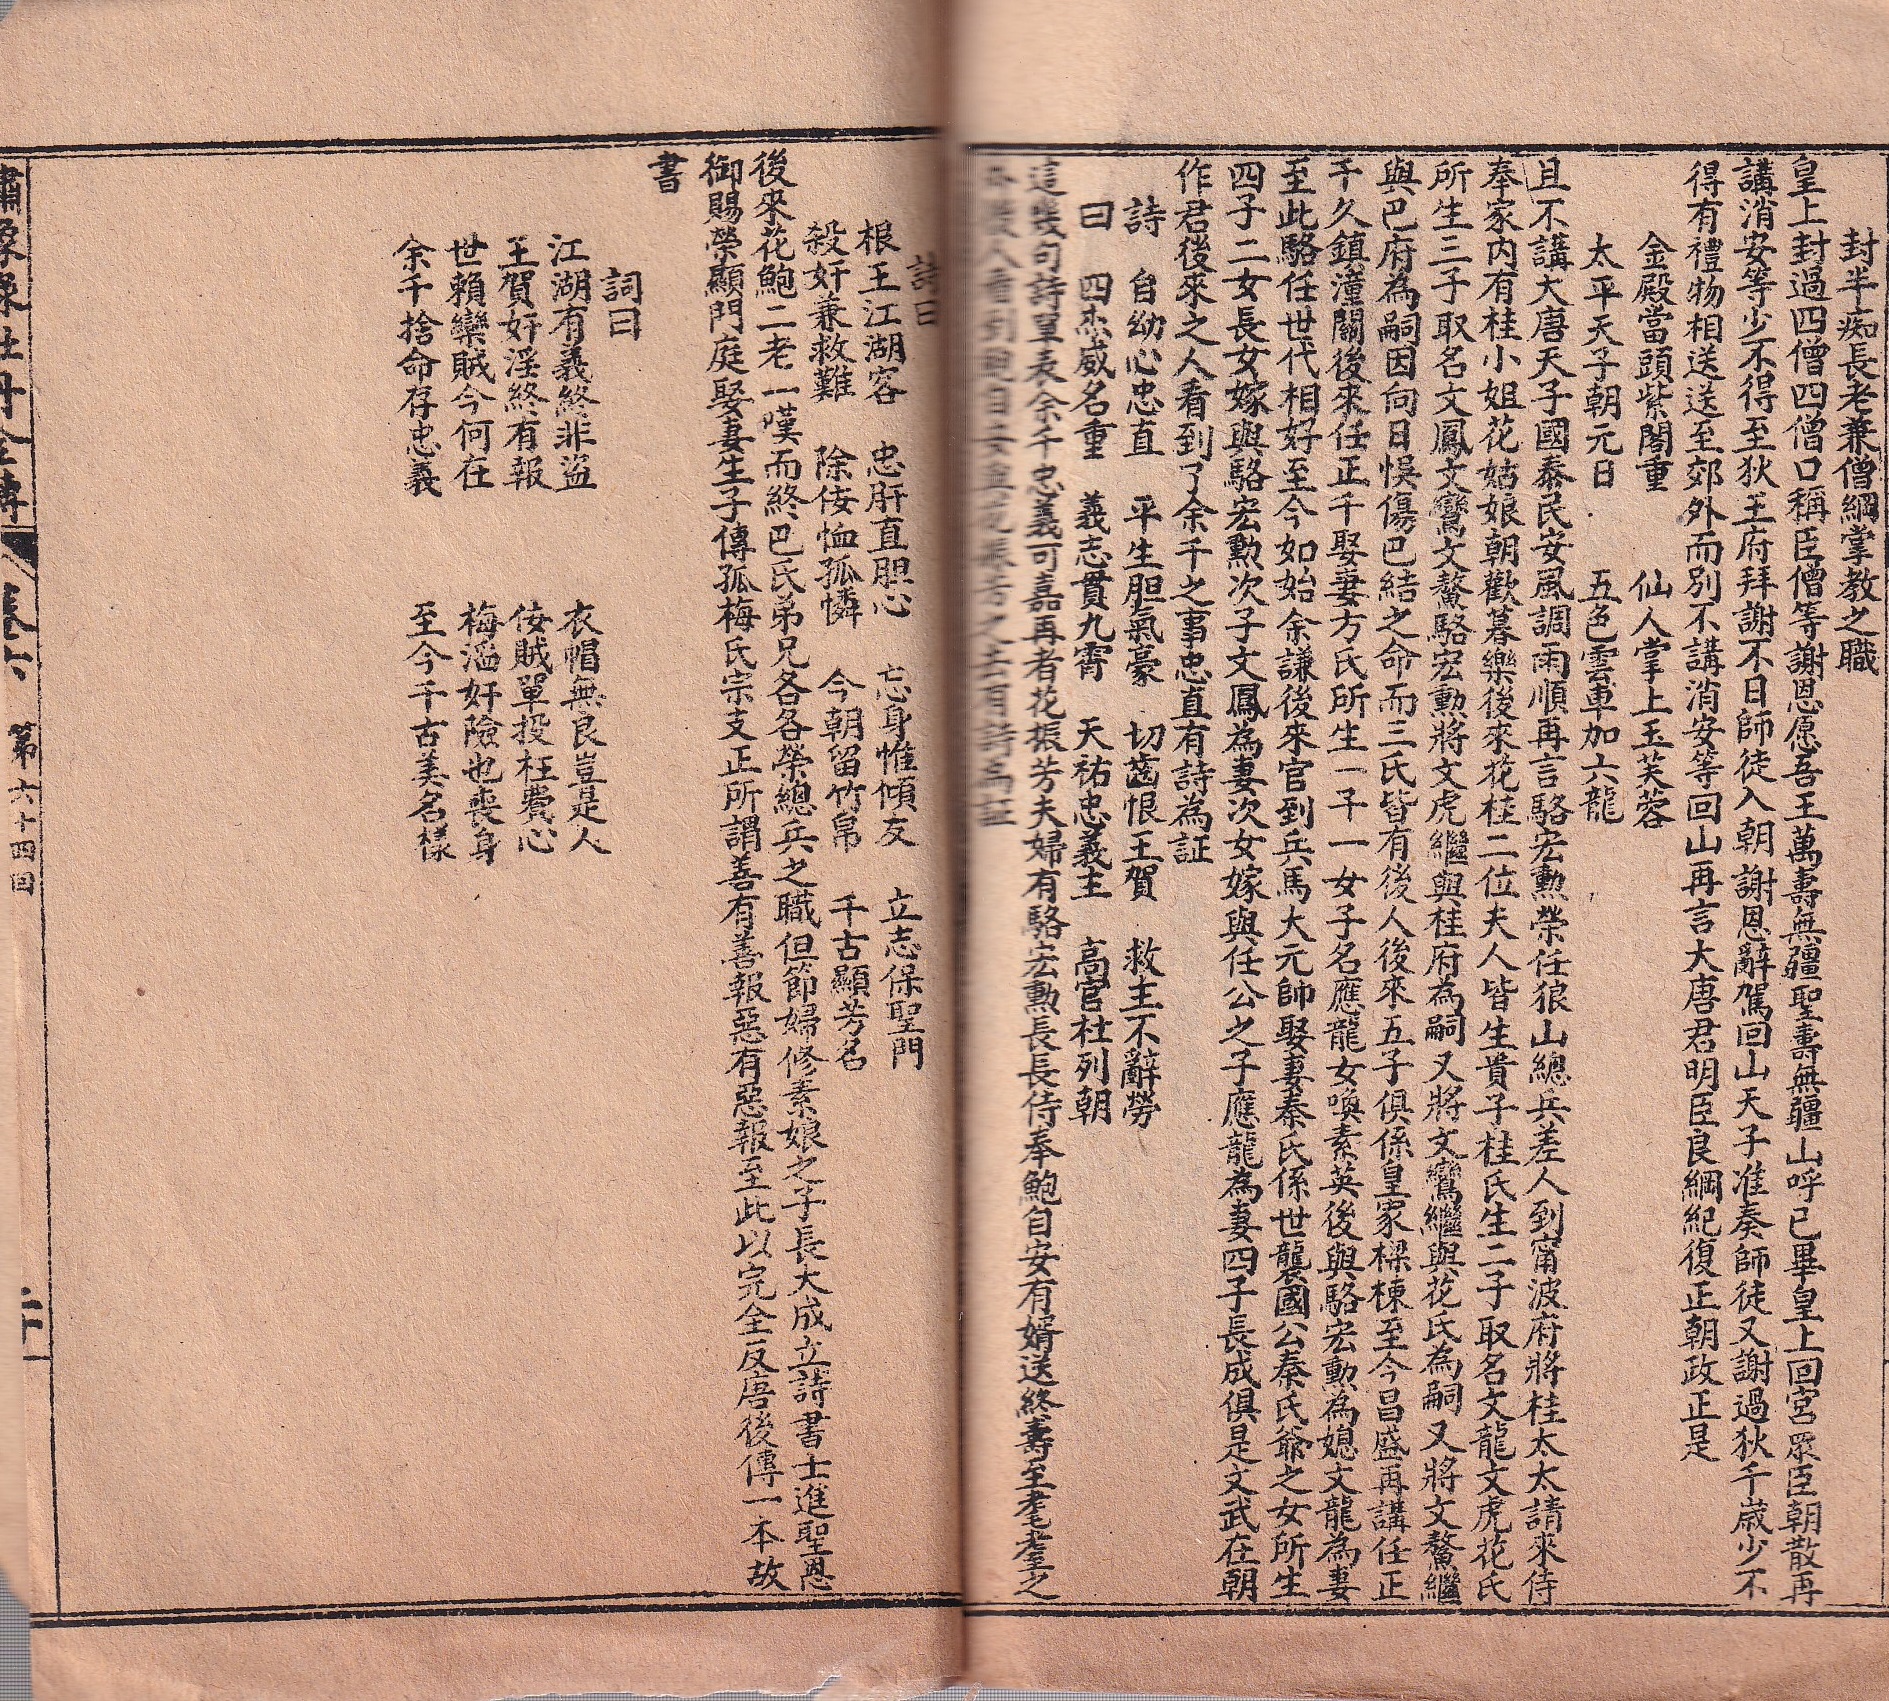 封半痴長老兼僧綱掌教之職
皇上封過四僧四僧口稱臣僧等謝恩愿吾王萬壽無疆聖壽無疆山呼已畢皇上回宮眾臣朝散再
講消安等少不得至狄王府拜謝不日師徒入朝謝恩辭駕回山天子准奏師徒又謝過狄千歲少不
得有禮物相送送至郊外而別不講消安等回山再言大唐君明臣良綱紀復正朝政正是
金殿當頭紫閣重　仙人掌上玉芙蓉
太平天子朝元日　五色雲車加六龍
且不講大唐天子國泰民安風調雨順再言駱宏勳榮任狼山總兵差人到甯波府將桂太太請來侍
奉家內有桂小姐花姑娘朝歡暮樂後來花桂二位夫人皆生貴子桂氏生二子取名文龍文虎花氏
所生三子取名文鳳文鸞文鰲駱宏勳將文虎繼與桂府為嗣又將文鸞繼與花氏為嗣又將文鰲繼
與巴府為嗣因向日悞傷巴結之命而三氏皆有後人後來五子俱係皇家樑棟至今昌盛再講任正
千久鎮潼關後來任正千娶妻方氏所生一子一女子名應龍女喚素英後與駱宏勳為媳文龍為妻
至此駱任世代相好至今如始余謙後來官到兵馬大元帥娶妻秦氏係世襲國公秦氏爺之女所生
四子二女長女嫁與駱宏勳次子文鳳為妻次女嫁與任公之子應龍為妻四子長成俱是文武在朝
作君後來之人看到了余千之事忠直有詩為証
詩　自幼心忠直　平生胆氣豪　切齒恨王賀　救主不辭勞
曰　四杰威名重　義志貫九霄　天祐忠義主　高官杜列朝
這幾句詩單表余千忠義可嘉再者花振芳夫婦有駱宏勳長長侍奉鮑自安有婿送終壽至耄耋之
人看到鮑自安與花振芳之去有詩為証
詩曰
根王江湖客　忠肝直胆心　忘身惟傾友　立志保聖門
殺奸兼救難　除佞恤孤憐　今朝留竹帛　千古顯芳名
後來花鮑二老一嘆而終巴氏弟兄各各榮總兵之職但節婦修素娘之子長大成立詩書士進聖恩
御賜榮顯門庭娶妻生子傳孤梅氏宗支正所謂善有善報惡有惡報至此以完全反唐後傳一本故
書
詞曰
江湖有義終非盜　衣帽無良豈是人
王賀奸淫終有報　佞賊單投枉費心
世賴欒賊今何在　梅滔奸險也喪身
余千捨命存忠義　至今千古美名樣
繡像綠牡丹全傳　卷六　第六十四回　二十一